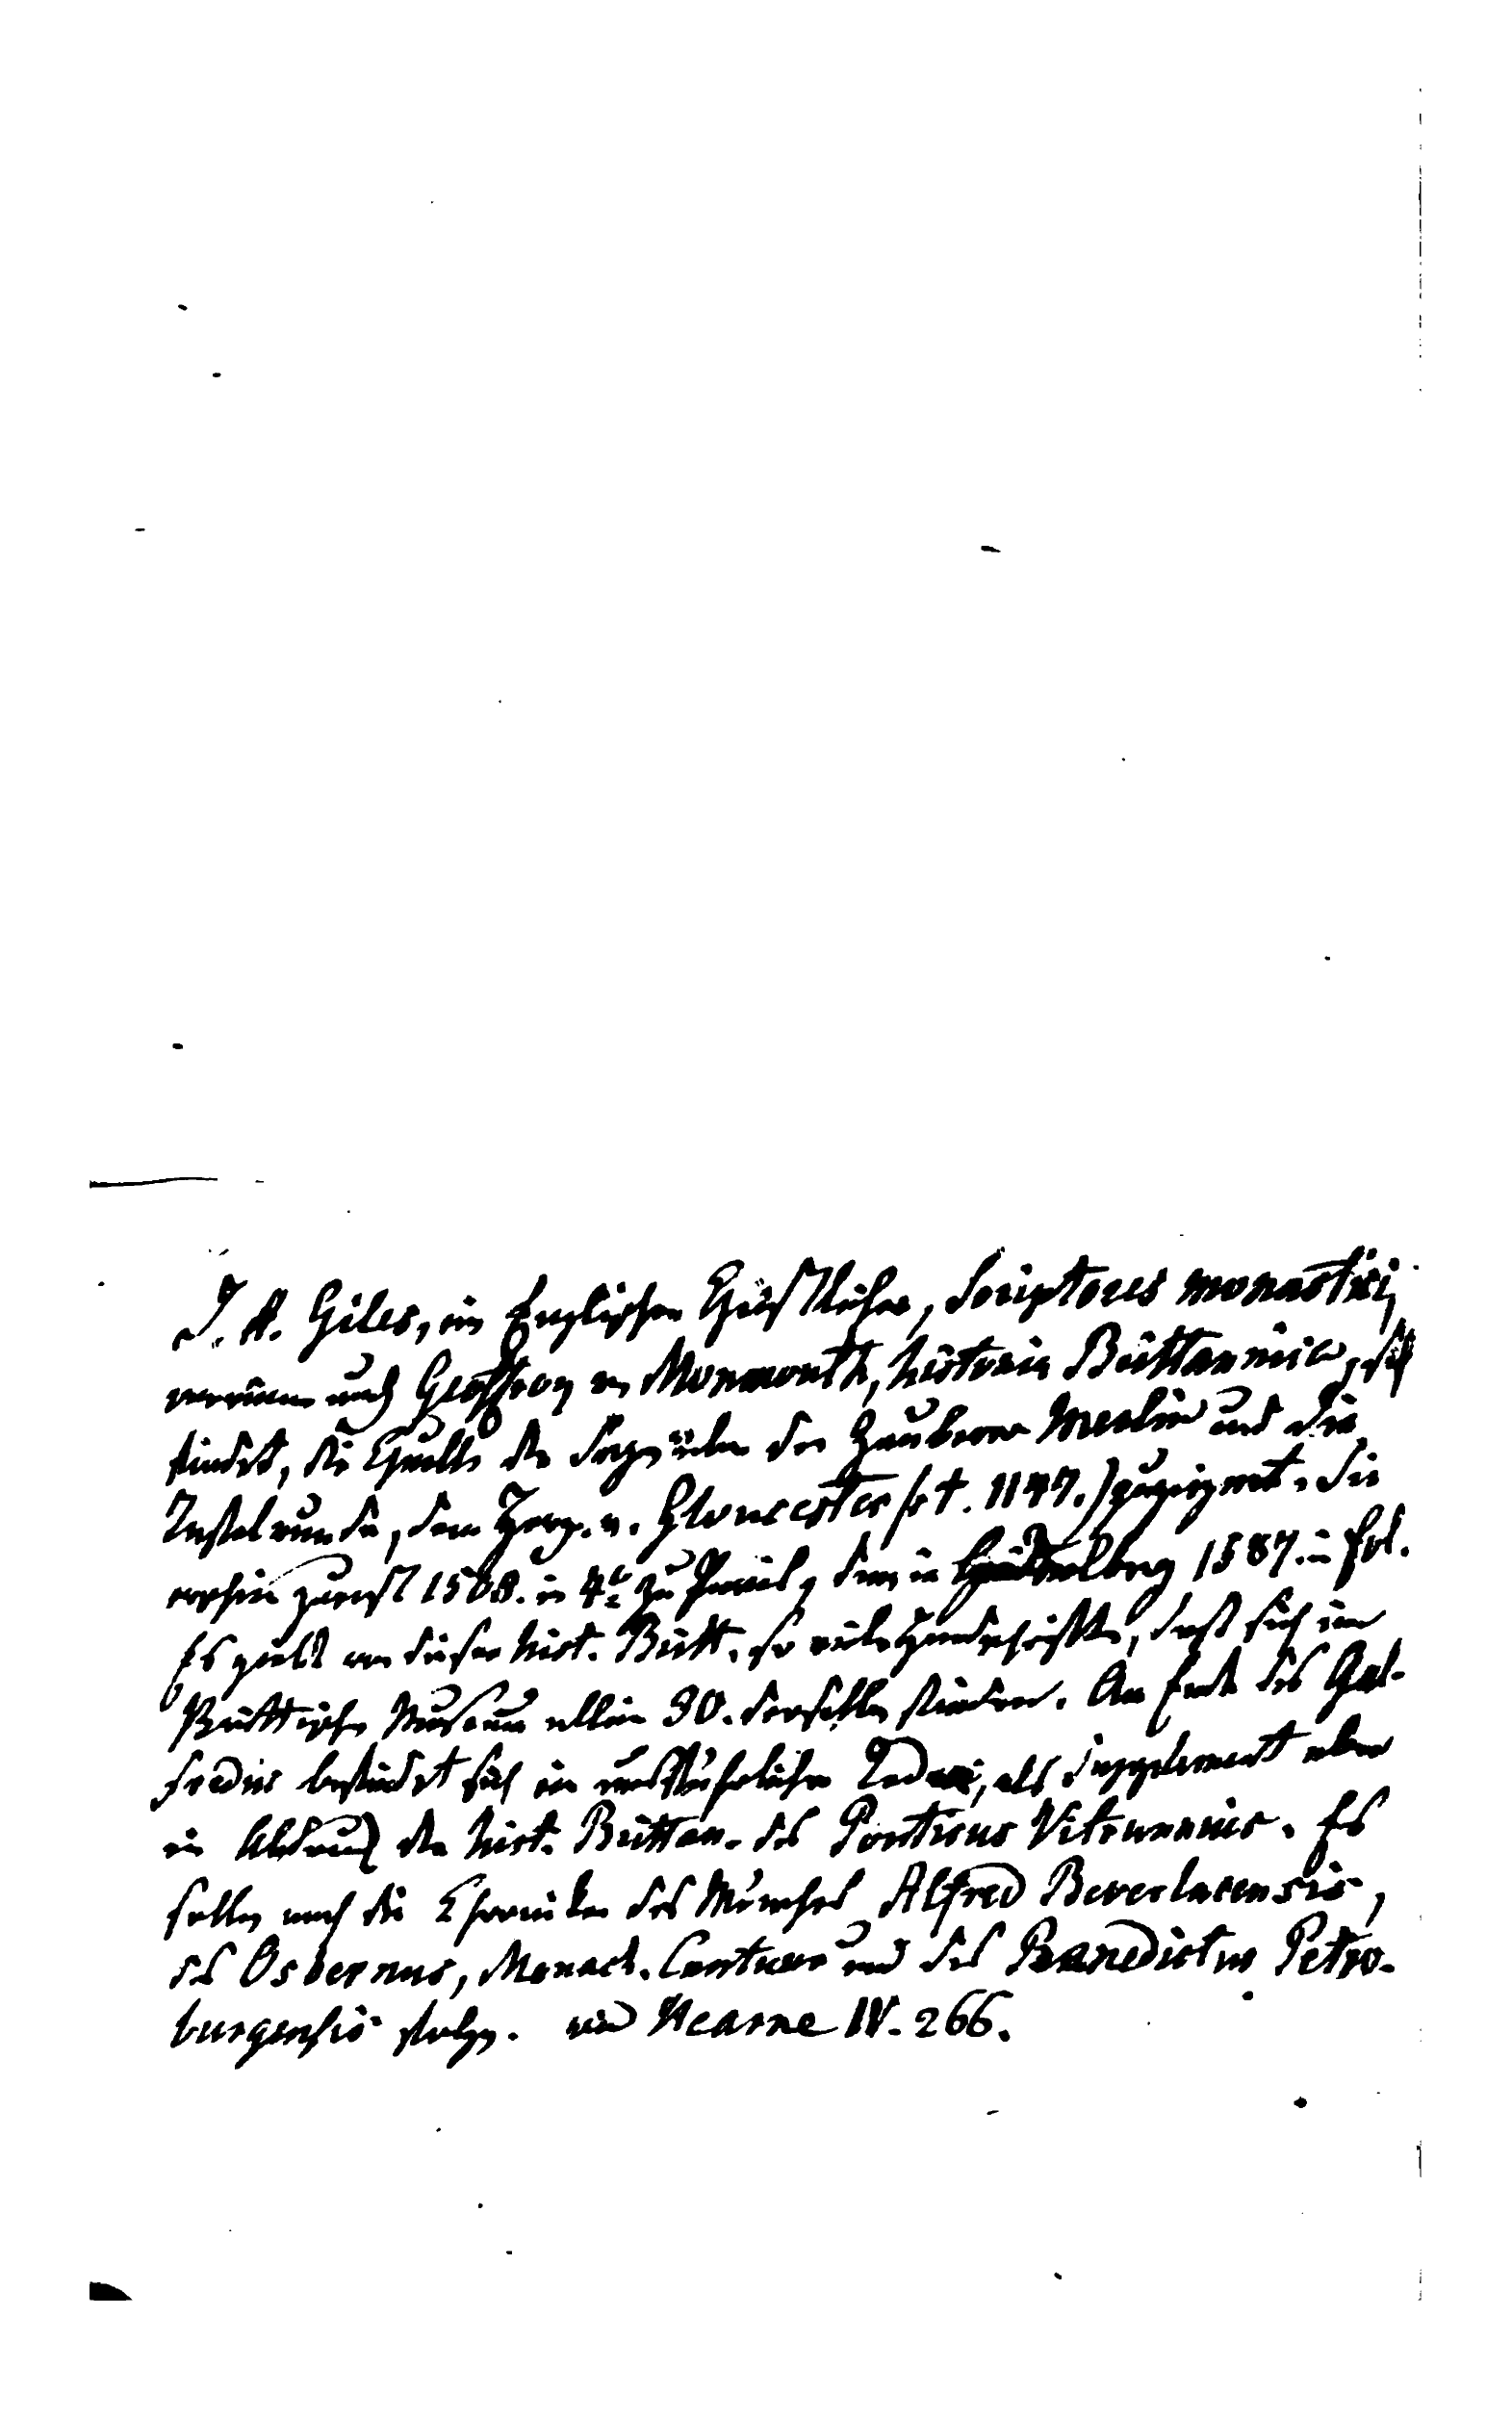 J. A. Giles, ein Englischer Geistlicher, Scriptores monastici,
worinn auch Geoffroy v. Monmouth, historia Brittannica, sich
findet, die Quelle der Sage über den Zauberer Merlin und die
Tafelrunde, dem Herz. v. Gloucester (+. 1147.) zugeeignet. Sie
erschien zuerst 1508. in 4to zu Paris, dann in Heidelberg 1587. in fol.
Es giebt von dieser hist. Britt. so viele Handschriften, daß sich im
Brittischen Museum allein 30. derselben finden. Am Ende des Gal-
fredus befindet sich ein ausführlicher Index, als Supplement aber
ein Abdruck der hist. Brittan. des Ponticus Virunnius. Es
sollen noch die Chroniken des Mönches Alfred Beverlacensis,
des Osbernus, Monach. Cantuar und des Benedictus Petro-
burgensis folgen. vid Hearne IV. 266.